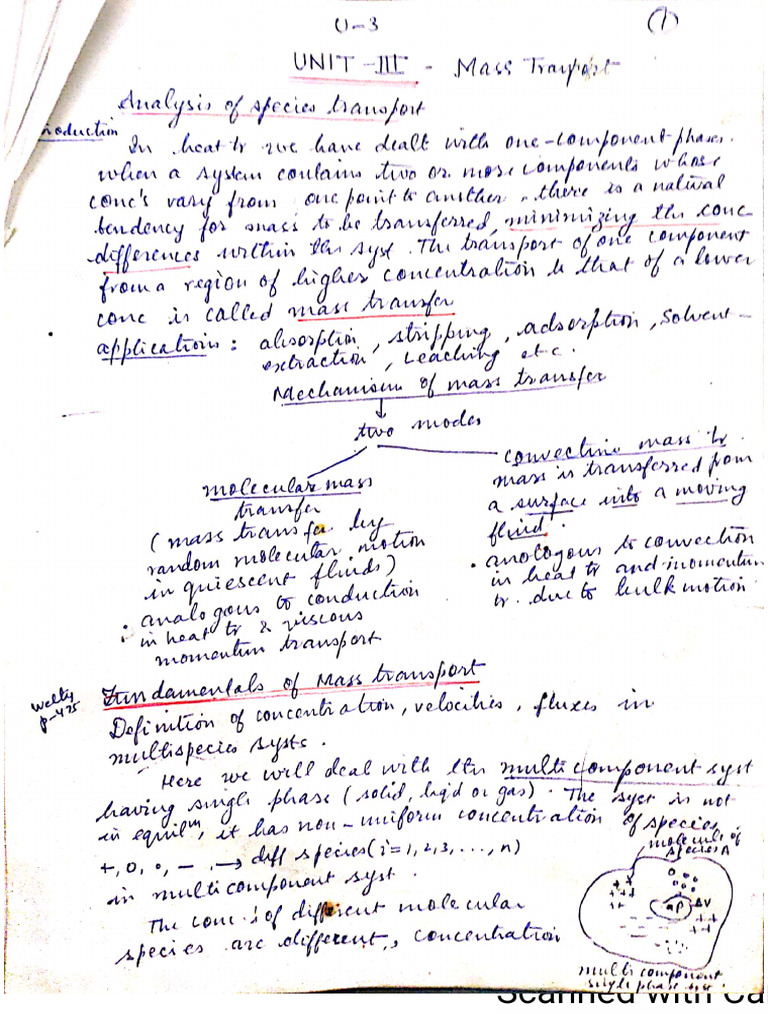 U-3
(1)
UNIT-III - Mass Tranport
Analysis of species transport
roduction In heat tr we have dealt with one-component phases.
when a system contains two or more components whose
conc's vary from one point to another, there is a natural
tendency for mass to be transferred, minimizing the conc
differences within the syst. The transport of one component
from a region of higher concentration to that of a lower
conc is called mass transfer
applications: absorption, stripping, adsorption, Solvent-
extraction, Leaching etc.
Mechanism of mass transfer
two modes
molecular mass
transfer
(mass transfer by
random molecular motion
in quiescent fluids)
analogous to conduction
in heat tr & viscous
momentum transport
convective mass tr.
mass is transferred from
a surface into a moving
fluid.
analogous to convection
in heat tr and momentum
tr. due to bulk motion
Welty
p-475
Fundamentals of Mass transport
Definition of concentration, velocities, fluxes in
multispecies systs.
Here we will deal with the multicomponent syst
having single phase (solid, liq'd or gas). The syst is not
in equilm, it has non-uniform concentration of species.
+, 0, ∘, —, → diff species (i=1,2,3,...,n)
in multicomponent syst.
The conc.s of different molecular
species are different, concentration
molecule of
species A
ΔV
multicomponent
single phase syst.
Scanned with Ca